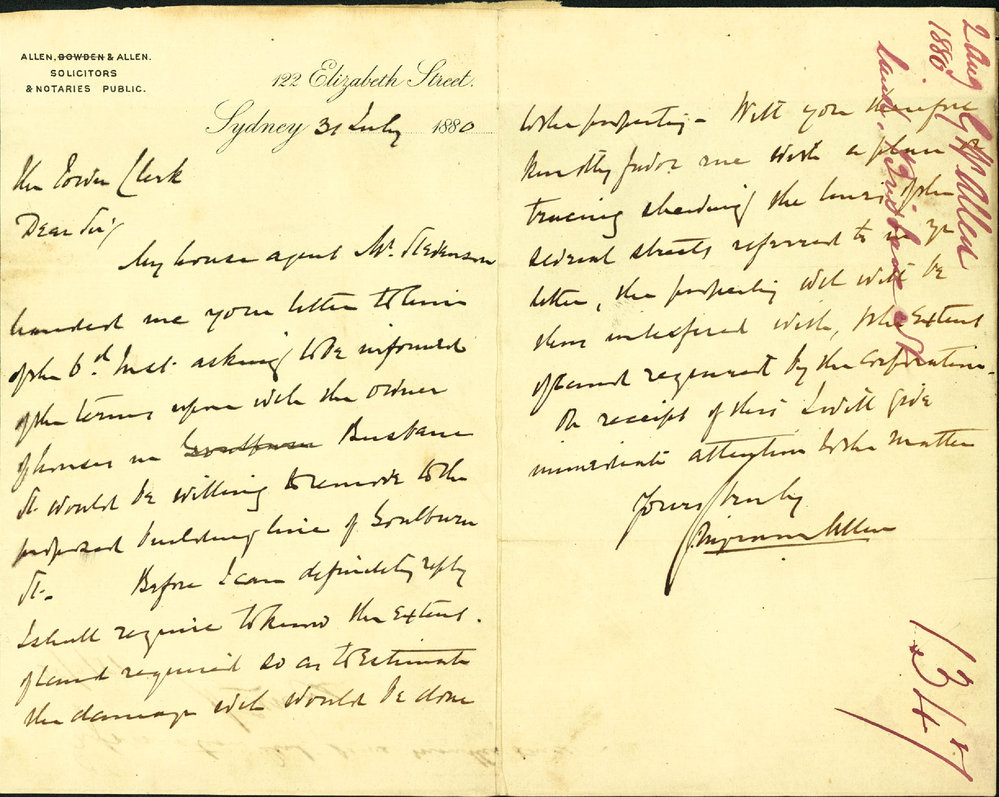 ALLEN, BOWDEN & ALLEN.
SOLICITORS
& NOTARIES PUBLIC.
122 Elizabeth Street.
Sydney 31 July 1880
The Town Clerk
Dear Sir
My house agent Mr. Stevenson
handed me your letter to him
of the 6th Inst. asking to be informed
of the terms upon wch the owner
of houses in Goulburn Brisbane
St. would be willing to remove to the
proposed building line of Goulburn
St. Before I can definitely reply
I shall require to know the extent
of land required so as to estimate
the damage wch would be done
to the property - Will you therefore
kindly favor me with a plan or
tracing shewing the lines of the
several streets referred to in yr
letter, the property wch will be
then interfered with, & the extent
of land required by the Corporation.
On receipt of this I will give
immediate attention to the matter
Yours truly
Wigram Allen
2 Aug
1880
G W Allen
Land, Brisbane St
1347